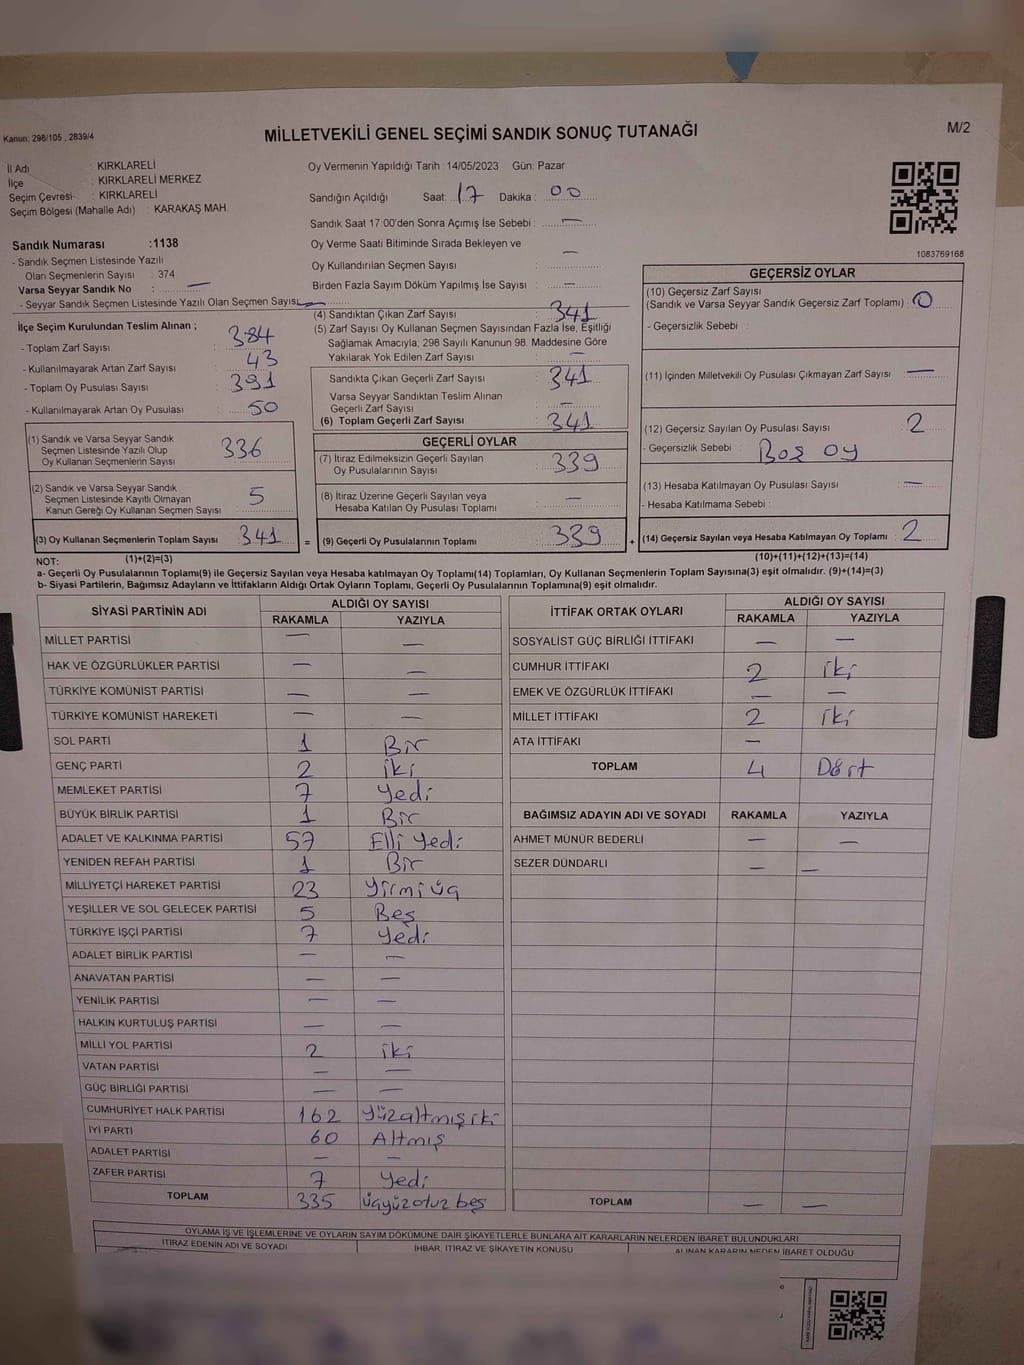 Kanun: 298/105 , 2839/4
MİLLETVEKİLİ GENEL SEÇİMİ SANDIK SONUÇ TUTANAĞI
M/2
İl Adı : KIRKLARELİ
İlçe : KIRKLARELİ MERKEZ
Seçim Çevresi : KIRKLARELİ
Seçim Bölgesi (Mahalle Adı) : KARAKAŞ MAH.
Sandık Numarası :1138
- Sandık Seçmen Listesinde Yazılı
Olan Seçmenlerin Sayısı : 374
Varsa Seyyar Sandık No : —
- Seyyar Sandık Seçmen Listesinde Yazılı Olan Seçmen Sayısı: —
Oy Vermenin Yapıldığı Tarih :14/05/2023 Gün: Pazar
Sandığın Açıldığı Saat: 17 Dakika : 00
Sandık Saat 17:00'den Sonra Açımış İse Sebebi : —
Oy Verme Saati Bitiminde Sırada Bekleyen ve
Oy Kullandırılan Seçmen Sayısı : —
Birden Fazla Sayım Döküm Yapılmış İse Sayısı : —
1083769168
İlçe Seçim Kurulundan Teslim Alınan ;
- Toplam Zarf Sayısı : 384
- Kullanılmayarak Artan Zarf Sayısı : 43
- Toplam Oy Pusulası Sayısı : 391
- Kullanılmayarak Artan Oy Pusulası : 50
(1) Sandık ve Varsa Seyyar Sandık
Seçmen Listesinde Yazılı Olup
Oy Kullanan Seçmenlerin Sayısı 336
(2) Sandık ve Varsa Seyyar Sandık
Seçmen Listesinde Kayıtlı Olmayan
Kanun Gereği Oy Kullanan Seçmen Sayısı 5
(3) Oy Kullanan Seçmenlerin Toplam Sayısı 341
(4) Sandıktan Çıkan Zarf Sayısı : 341
(5) Zarf Sayısı Oy Kullanan Seçmen Sayısından Fazla İse, Eşitliği
Sağlamak Amacıyla, 298 Sayılı Kanunun 98. Maddesine Göre
Yakılarak Yok Edilen Zarf Sayısı : —
Sandıkta Çıkan Geçerli Zarf Sayısı : 341
Varsa Seyyar Sandıktan Teslim Alınan
Geçerli Zarf Sayısı : —
(6) Toplam Geçerli Zarf Sayısı : 341
GEÇERLİ OYLAR
(7) İtiraz Edilmeksizin Geçerli Sayılan
Oy Pusulalarının Sayısı : 339
(8) İtiraz Üzerine Geçerli Sayılan veya
Hesaba Katılan Oy Pusulası Toplamı : —
= (9) Geçerli Oy Pusulalarının Toplamı : 339 +
GEÇERSİZ OYLAR
(10) Geçersiz Zarf Sayısı
(Sandık ve Varsa Seyyar Sandık Geçersiz Zarf Toplamı) : 0
- Geçersizlik Sebebi :
(11) İçinden Milletvekili Oy Pusulası Çıkmayan Zarf Sayısı : —
(12) Geçersiz Sayılan Oy Pusulası Sayısı : 2
- Geçersizlik Sebebi : Boş oy
(13) Hesaba Katılmayan Oy Pusulası Sayısı : —
- Hesaba Katılmama Sebebi :
(14) Geçersiz Sayılan veya Hesaba Katılmayan Oy Toplamı : 2
NOT: (1)+(2)=(3)
(10)+(11)+(12)+(13)=(14)
a- Geçerli Oy Pusulalarının Toplamı(9) ile Geçersiz Sayılan veya Hesaba katılmayan Oy Toplamı(14) Toplamları, Oy Kullanan Seçmenlerin Toplam Sayısına(3) eşit olmalıdır. (9)+(14)=(3)
b- Siyasi Partilerin, Bağımsız Adayların ve İttifakların Aldığı Ortak Oyların Toplamı, Geçerli Oy Pusulalarının Toplamına(9) eşit olmalıdır.
SİYASİ PARTİNİN ADI ALDIĞI OY SAYISI
RAKAMLA YAZIYLA
MİLLET PARTİSİ — —
HAK VE ÖZGÜRLÜKLER PARTİSİ — —
TÜRKİYE KOMÜNİST PARTİSİ — —
TÜRKİYE KOMÜNİST HAREKETİ — —
SOL PARTİ 1 Bir
GENÇ PARTİ 2 iki
MEMLEKET PARTİSİ 7 Yedi
BÜYÜK BİRLİK PARTİSİ 1 Bir
ADALET VE KALKINMA PARTİSİ 57 Elli Yedi
YENİDEN REFAH PARTİSİ 1 Bir
MİLLİYETÇİ HAREKET PARTİSİ 23 Yirmi üç
YEŞİLLER VE SOL GELECEK PARTİSİ 5 Beş
TÜRKİYE İŞÇİ PARTİSİ 7 Yedi
ADALET BİRLİK PARTİSİ — —
ANAVATAN PARTİSİ — —
YENİLİK PARTİSİ — —
HALKIN KURTULUŞ PARTİSİ — —
MİLLİ YOL PARTİSİ 2 iki
VATAN PARTİSİ — —
GÜÇ BİRLİĞİ PARTİSİ — —
CUMHURİYET HALK PARTİSİ 162 Yüzaltmışiki
İYİ PARTİ 60 Altmış
ADALET PARTİSİ — —
ZAFER PARTİSİ 7 Yedi
TOPLAM 335 üçyüzotuz beş
İTTİFAK ORTAK OYLARI ALDIĞI OY SAYISI
RAKAMLA YAZIYLA
SOSYALİST GÜÇ BİRLİĞİ İTTİFAKI — —
CUMHUR İTTİFAKI 2 iki
EMEK VE ÖZGÜRLÜK İTTİFAKI — —
MİLLET İTTİFAKI 2 iki
ATA İTTİFAKI —
TOPLAM 4 Dört
BAĞIMSIZ ADAYIN ADI VE SOYADI RAKAMLA YAZIYLA
AHMET MÜNÜR BEDERLİ — —
SEZER DÜNDARLI — —
TOPLAM — —
OYLAMA İŞ VE İŞLEMLERİNE VE OYLARIN SAYIM DÖKÜMÜNE DAİR ŞİKAYETLERLE BUNLARA AİT KARARLARIN NELERDEN İBARET BULUNDUKLARI
İTİRAZ EDENİN ADI VE SOYADI İHBAR, İTİRAZ VE ŞİKAYETİN KONUSU ALINAN KARARIN NEDEN İBARET OLDUĞU